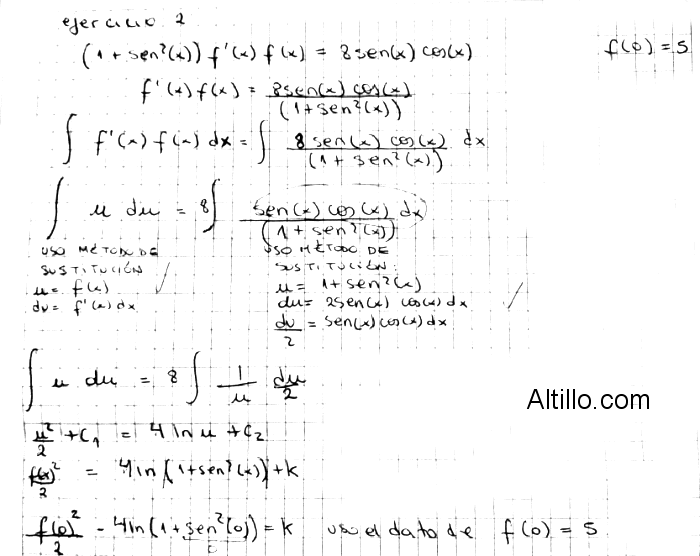 ejercicio 2
(1 + sen²(x)) f'(x) f(x) = 8 sen(x) cos(x)    f(0) = 5
f'(x) f(x) = 8sen(x) cos(x) / (1 + sen²(x))
∫ f'(x) f(x) dx = ∫ 8 sen(x) cos(x) / (1 + sen²(x)) dx
∫ u du = 8 ∫ sen(x) cos(x) dx / (1 + sen²(x))
USO MÉTODO DE    USO MÉTODO DE
SUSTITUCIÓN    SUSTITUCIÓN:
u = f(x)    u = 1 + sen²(x)
du = f'(x) dx    du = 2sen(x) cos(x) dx
du/2 = sen(x) cos(x) dx
∫ u du = 8 ∫ 1/u du/2
Altillo.com
u²/2 + C₁ = 4 ln u + C₂
f(x)²/2 = 4 ln (1 + sen²(x)) + k
f(0)²/2 - 4 ln (1 + sen²(0)) = k    uso el dato de f(0) = 5
0